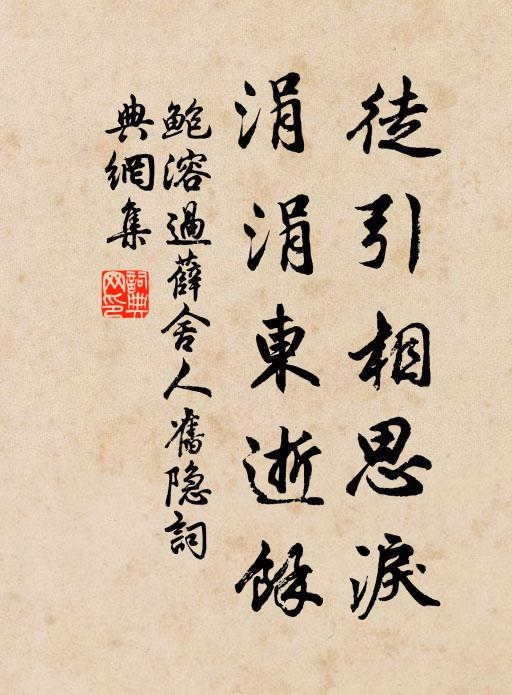 徒引相思淚
涓涓東逝餘
鮑溶過薛舍人舊隐詞
典網集
詞典网印